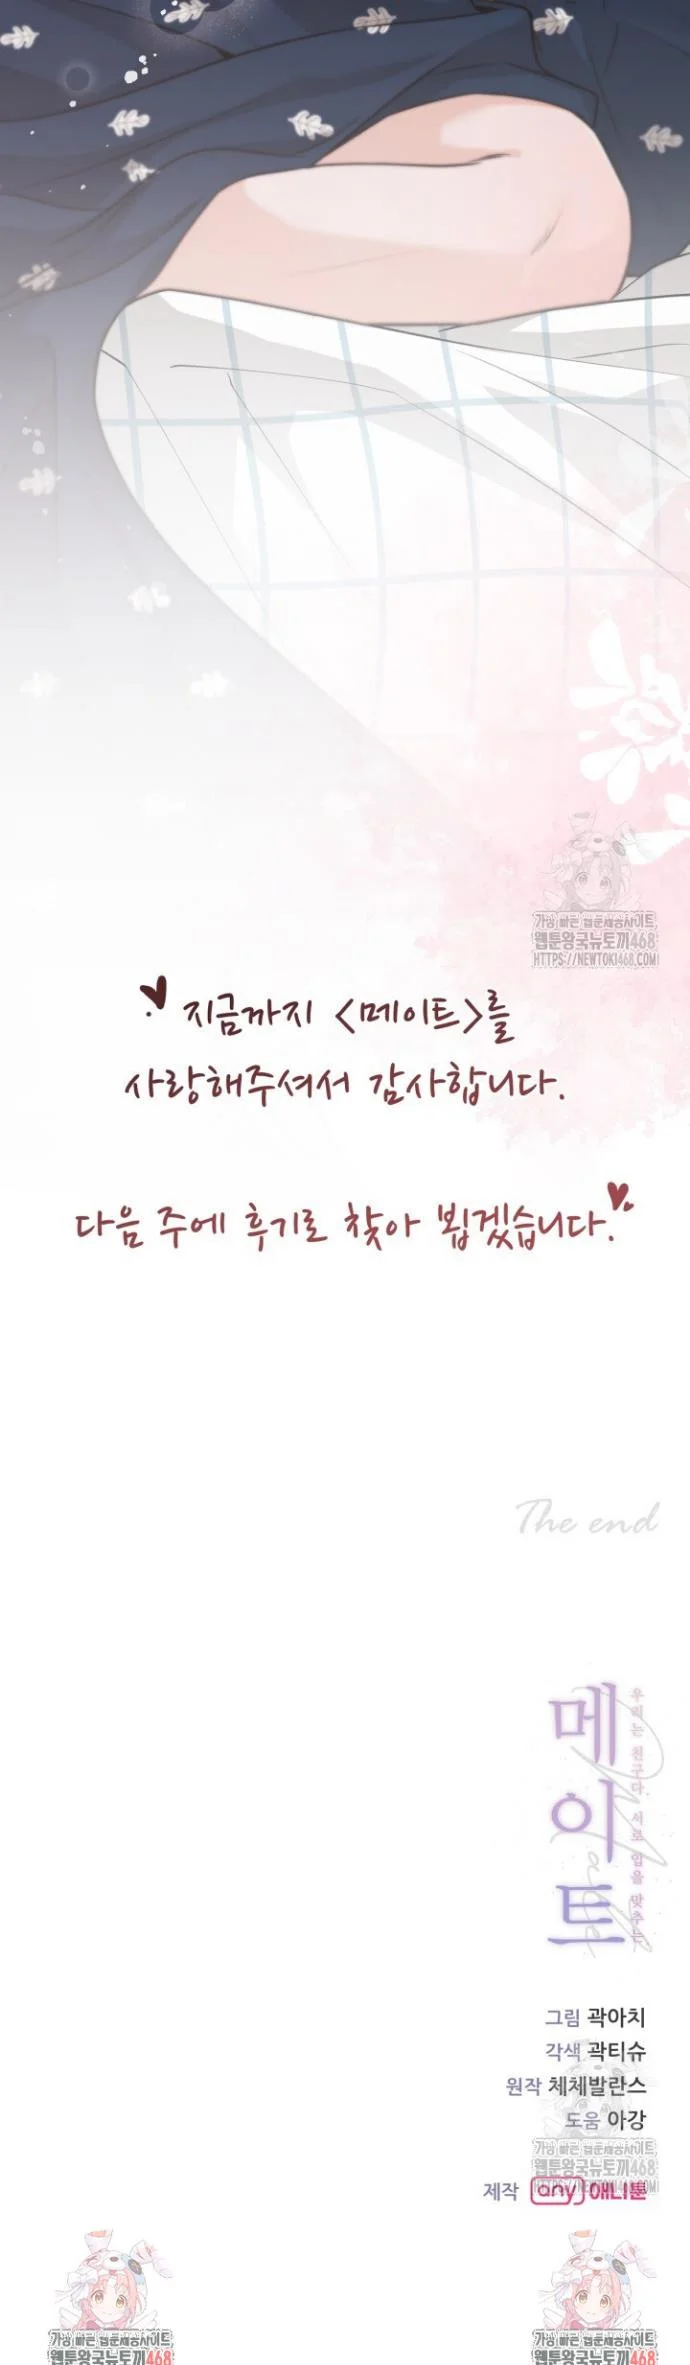 가장 빠른 웹툰제공사이트,
웹툰왕국뉴토끼468
HTTPS://NEWTOKI468.COM
지금까지 <메이트>를
사랑해주셔서 감사합니다.
다음 주에 후기로 찾아 뵙겠습니다.
The end
메이트
우리는 친구다. 서로 입을 맞추는.
Mate
그림 곽아치
각색 곽티슈
원작 체체발란스
도움 아강
가장 빠른 웹툰제공사이트,
웹툰왕국뉴토끼468
제작 any 애니툰
가장 빠른 웹툰제공사이트,
웹툰왕국뉴토끼468
가장 빠른 웹툰제공사이트,
웹툰왕국뉴토끼468